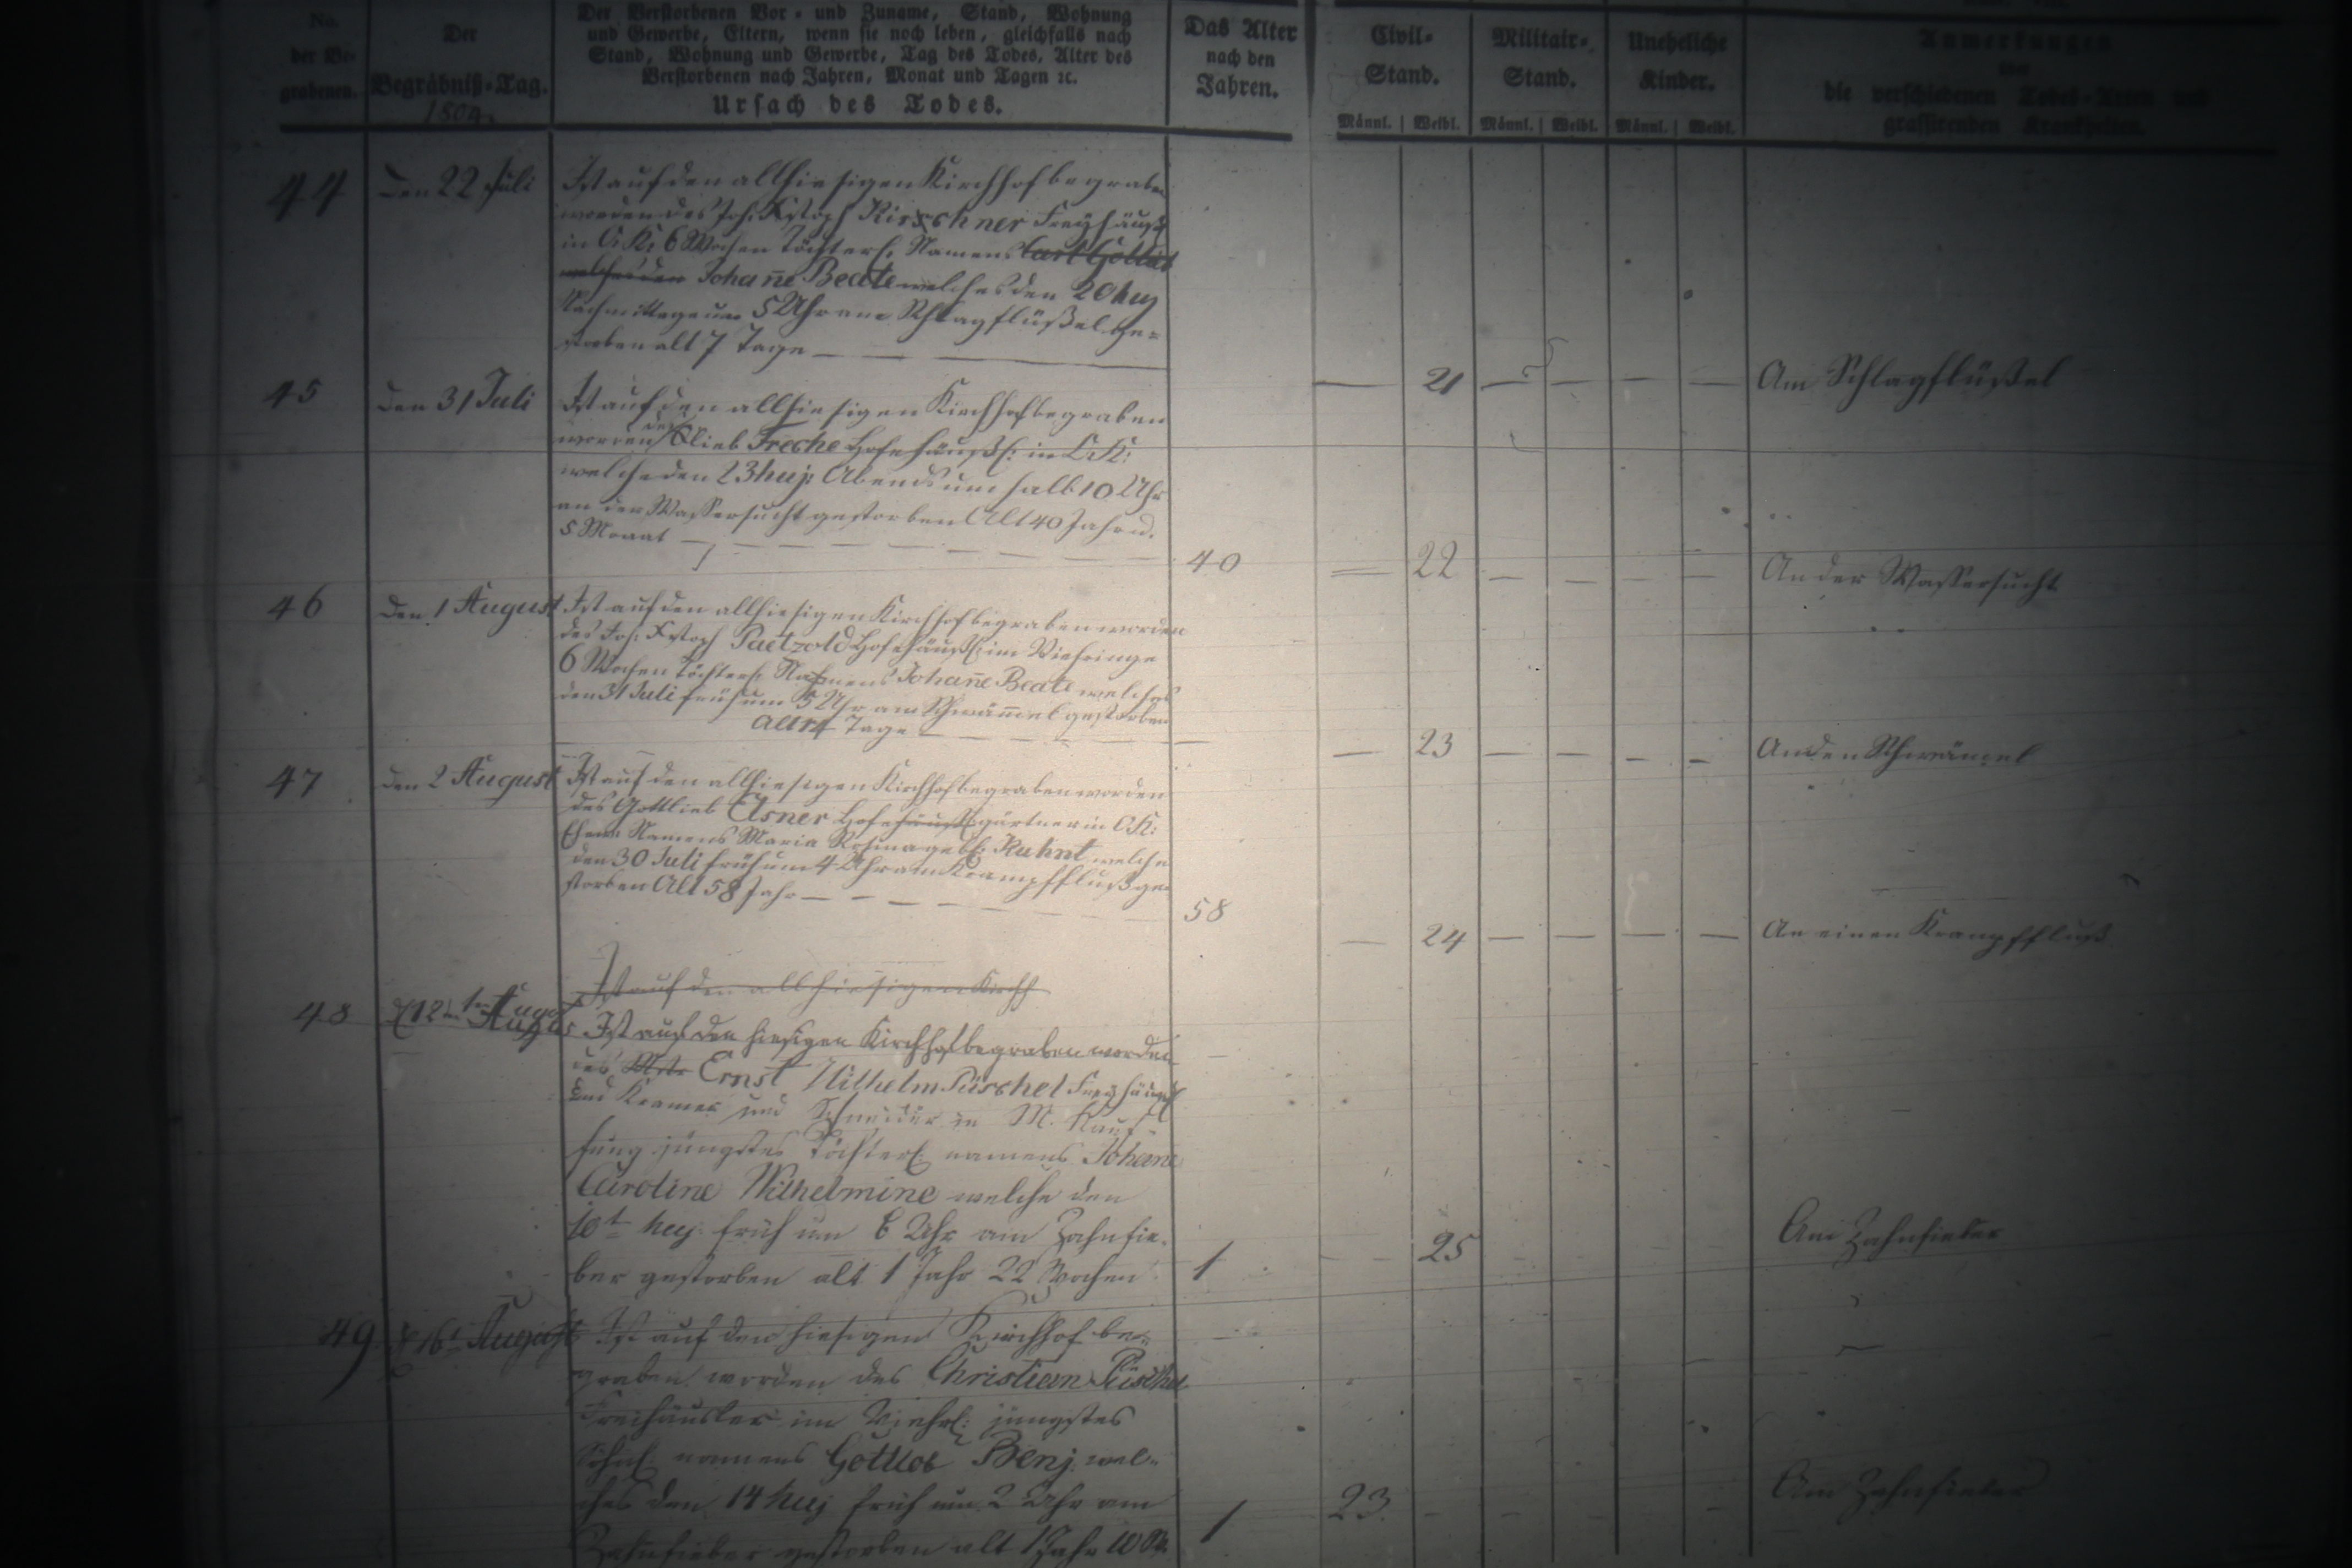 No. der Begrabenen.
Der Begräbniß-Tag.
1804.
Der Verstorbenen Vor- und Zuname, Stand, Wohnung
und Gewerbe, Eltern, wenn sie noch leben, gleichfalls nach
Stand, Wohnung und Gewerbe, Tag des Todes, Alter des
Verstorbenen nach Jahren, Monat und Tagen ꝛc.
Ursach des Todes.
Das Alter
nach den
Jahren.
Civil-
Stand.
Militair-
Stand.
Uneheliche
Kinder.
Männl. Weibl. Männl. Weibl. Männl. Weibl.
Anmerkungen
über
die verschiedenen Todes-Arten und
grassirenden Krankheiten.
44 Den 22 Juli
Ist auf den allhiesigen Kirchhof begraben
worden des Joh: Xstoph Kirschner Freyhäusl
in O. K: 6 Wochen Töchterl. Namens Carl Gottlieb
welches den Johañe Beate welches den 20 huj
Nachmittage um 5 Uhr am Schlagflüßel ge=
storben alt 7 Tage
21 Am Schlagflüßel
45 den 31 Juli
Ist auf den allhiesigen Kirchhof begraben
worden des Glieb Freche Hofehäusl: in O. K:
welche den 23 huj: Abends um halb 10 Uhr
an der Wassersucht gestorben Alt 40 Jahr u.
5 Monat
40 22 An der Wassersucht
46 Den 1 August
Ist auf den allhiesigen Kirchhof begraben worden
des Joh: Xstoph Paetzold Hofehäusl: im Viehringe
6 Wochen Töchterl. Nahmens Johañe Beate welches
den 31 Juli früh um 5 Uhr am Schwämel gestorben
alt 14 Tage
23 An den Schwämel
47 den 2 August
Ist auf den allhiesigen Kirchhof begraben worden
des Gottlieb Elsner Hofehäusl: gärtner in O. K:
Ehew: Namens Maria Rosina geb: Kuhnt welche
den 30 Juli früh um 4 Uhr am Krampffluß ge=
storben Alt 58 Jahr
58 24 An einen Krampffluß
Ist auf den allhiesigen Kirchh
48 d 12 August
Ist auf den hiesigen Kirchhof begraben worden
des Mstr Ernst Wilhelm Püschel Freyhäusl
und Kramer und Schneider in M. Kauf-
fung jüngstes Töchterl: namens Johane
Caroline Wilhelmine welche den
10t huj: früh um 6 Uhr am Zahnfie-
ber gestorben alt 1 Jahr 22 Wochen
1 25 Am Zahnfieber
49 d 16t August
Ist auf den hiesigen Kirchhof be=
graben worden des Christian Püschel
Freihäusler im Viehr: jüngstes
Söhnl: namens Gottlob Benj. wel=
ches den 14 huj früh um 2 Uhr am
Zahnfieber gestorben alt 1 Jahr 10 W.
1 23 Am Zahnfieber